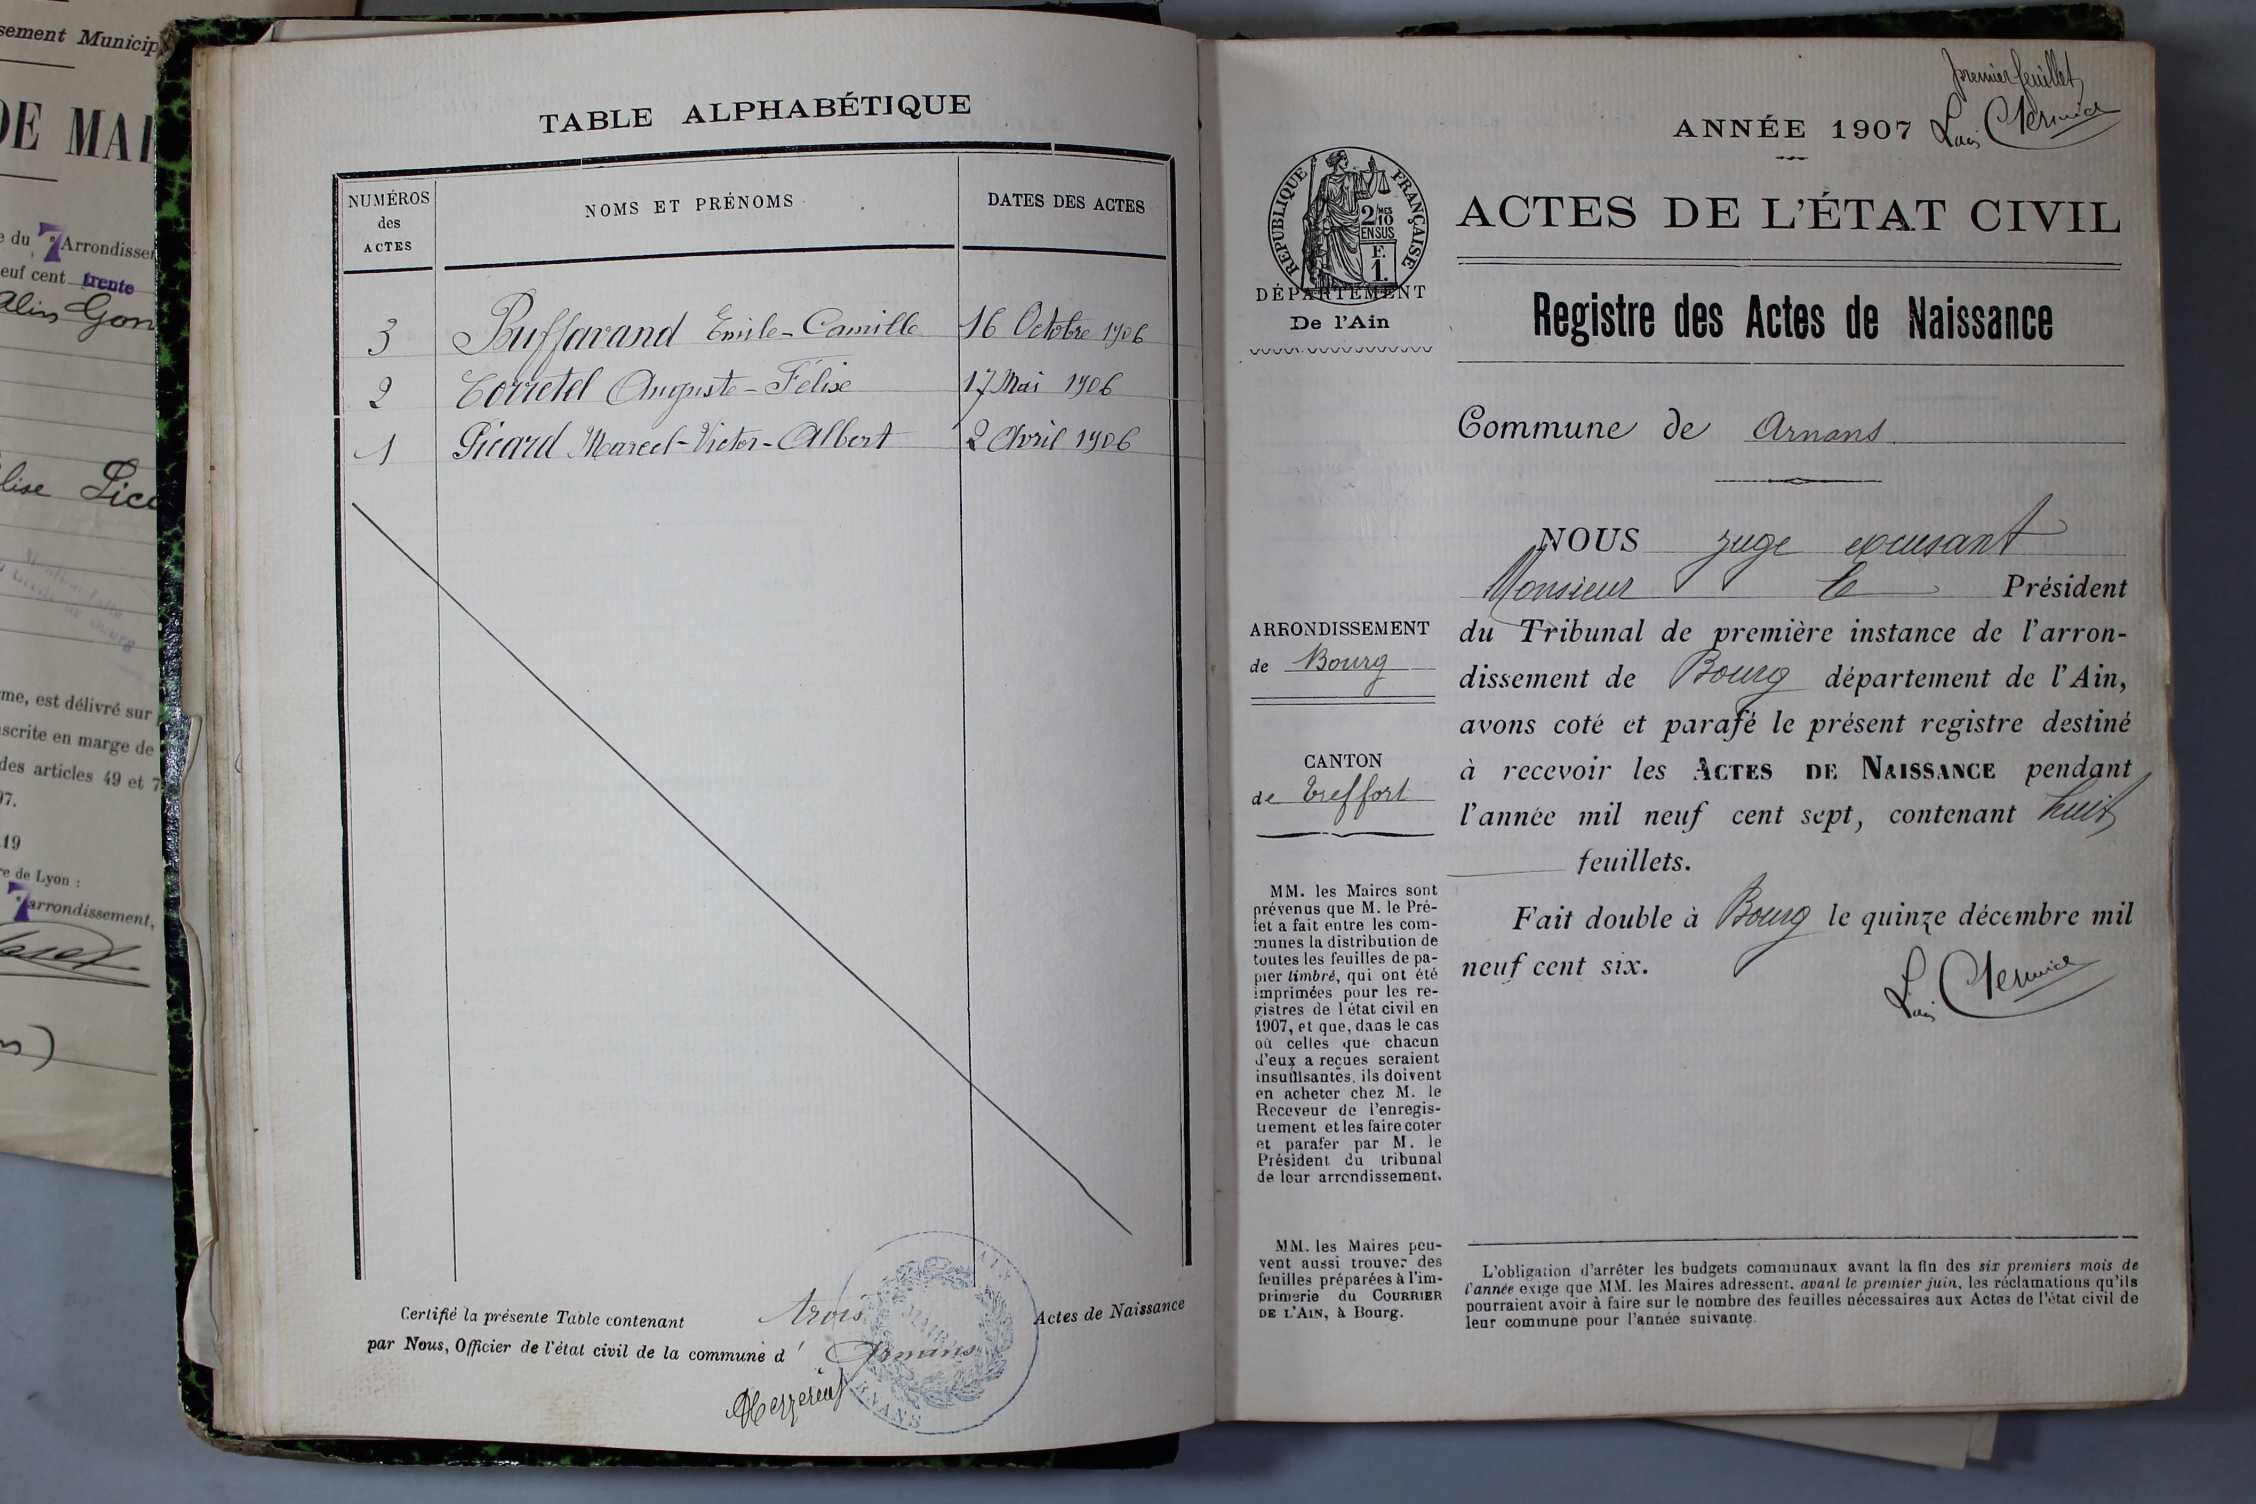 sement Municip
DE MAI
e du 7e Arrondissem
euf cent trente
alin Gon
lise Lico
me, est délivré sur
scrite en marge de
des articles 49 et 7
97.
19
re de Lyon :
7e arrondissement,
TABLE ALPHABÉTIQUE
NUMÉROS des ACTES NOMS ET PRÉNOMS DATES DES ACTES
3 Buffavand Emile-Camille 16 Octobre 1906
2 Corretel Auguste-Félix 17 Mai 1906
1 Picard Marcel-Victor-Albert 2 Avril 1906
Certifié la présente Table contenant trois Actes de Naissance
par Nous, Officier de l'état civil de la commune d' Arnans
MAIRIE
ARNANS
AIN
premier feuillet
ANNÉE 1907
RÉPUBLIQUE FRANÇAISE
2/10 MES
EN SUS
F.
1.
ACTES DE L'ÉTAT CIVIL
DÉPARTEMENT
De l'Ain
Registre des Actes de Naissance
Commune de Arnans
NOUS juge excusant
Monsieur le Président
du Tribunal de première instance de l'arron-
dissement de Bourg département de l'Ain,
avons coté et parafé le présent registre destiné
à recevoir les ACTES DE NAISSANCE pendant
l'année mil neuf cent sept, contenant huit
feuillets.
Fait double à Bourg le quinze décembre mil
neuf cent six.
ARRONDISSEMENT
de Bourg
CANTON
de Treffort
MM. les Maires sont
prévenus que M. le Pré-
fet a fait entre les com-
munes la distribution de
toutes les feuilles de pa-
pier timbré, qui ont été
imprimées pour les re-
gistres de l'état civil en
1907, et que, dans le cas
où celles que chacun
d'eux a reçues seraient
insuffisantes, ils doivent
en acheter chez M. le
Receveur de l'enregis-
trement et les faire coter
et parafer par M. le
Président du tribunal
de leur arrondissement.
MM. les Maires peu-
vent aussi trouver des
feuilles préparées à l'im-
primerie du COURRIER
DE L'AIN, à Bourg.
L'obligation d'arrêter les budgets communaux avant la fin des six premiers mois de
l'année exige que MM. les Maires adressent, avant le premier juin, les réclamations qu'ils
pourraient avoir à faire sur le nombre des feuilles nécessaires aux Actes de l'état civil de
leur commune pour l'année suivante.